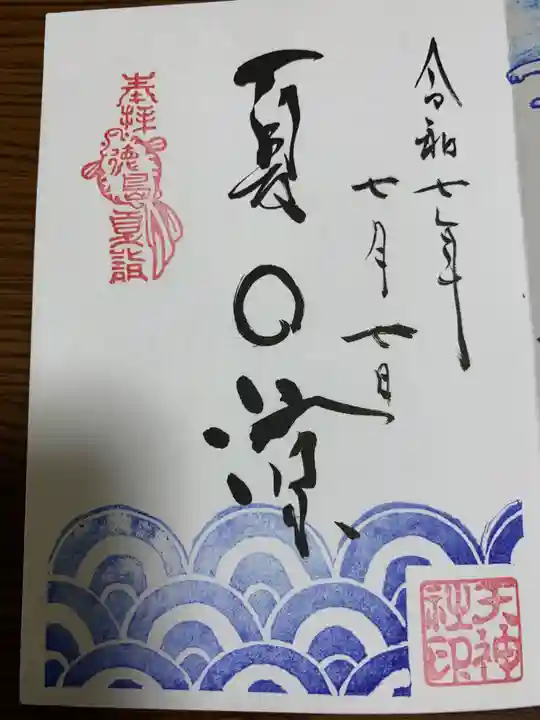 令和七年
七月七日
夏〇涼
奉拝
徳島夏詣
天神
社印